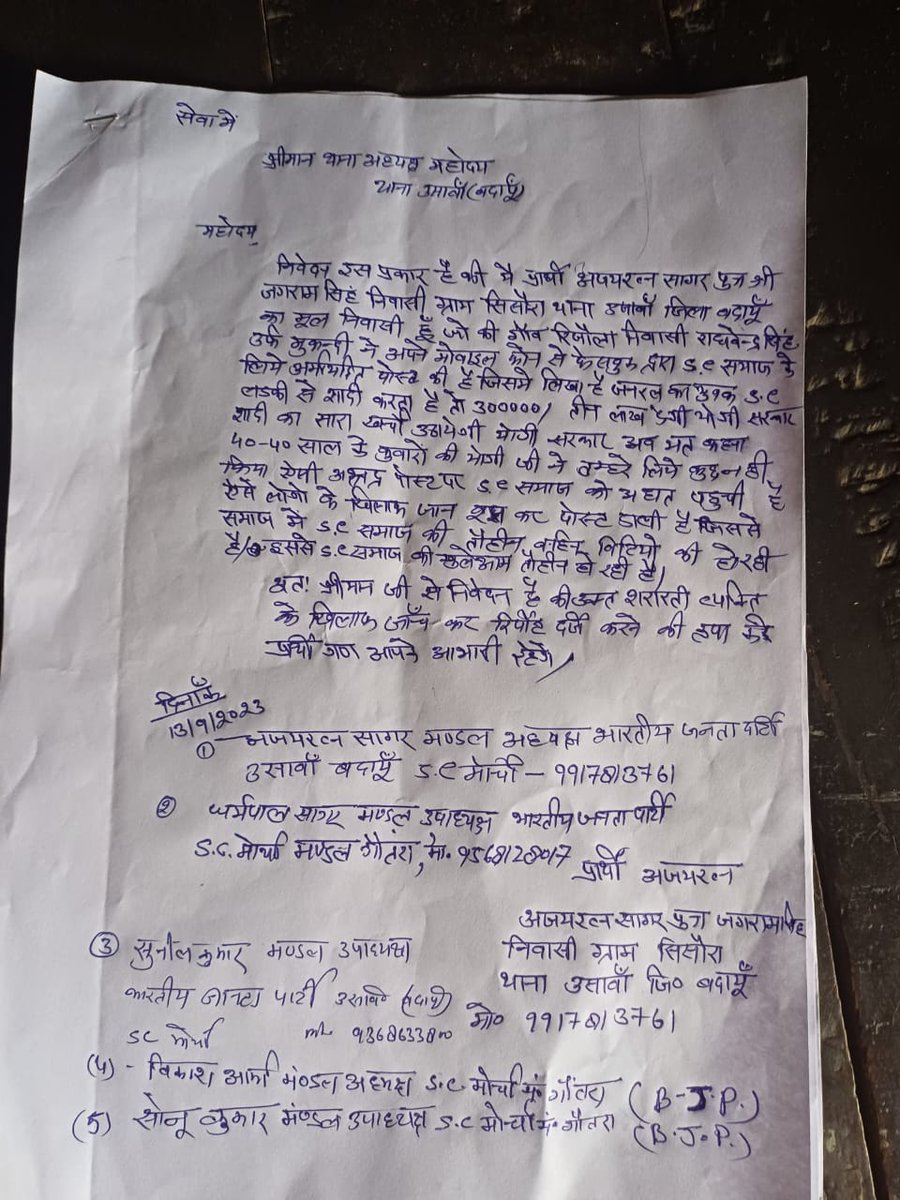 सेवा में
श्रीमान थाना अध्यक्ष महोदय
थाना उसावाँ (बदायूँ)
महोदय,
निवेदन इस प्रकार है की मै प्रार्थी अजयरत्न सागर पुत्र श्री
जगराम सिहं निवासी ग्राम सिसौरा थाना उसावाँ जिला बदायूँ
का मूल निवासी हूँ जो की गाँव रिजौला निवासी राघवेन्द्र सिंह
उर्फ मुकन्दी ने अपने मोवाइल फोन से फेसबुक द्वारा S.C समाज के
लिये अमर्यादित पोस्ट की है जिसमे लिखा है जनरल का युवक S.C
लडकी से शादी करता है तो 300000/ तीन लाख देगी योगी सरकार
शादी का सारा खर्चा उठायेगी योगी सरकार अव मत कहना
40-40 साल के कुवारों की योगी जी ने तुम्हरे लिये कुछ नही
किया ऐसी अभद्र पोस्ट पर S.C समाज को अघात पहुची है
ऐसे लोगो के खिलाफ जान कर पोस्ट डाली है जिससे
समाज मे S.C समाज की तौहीन वहिन विटियो की हो रही
है/ इससे S.C समाज की खुलेआम तौहीन हो रही है/
अतः श्रीमान जी से निवेदन है की उक्त शरारती व्यक्ति
के खिलाफ जाँच कर रिपोर्ट दर्ज करने की कृपा करे
प्रार्थी गण आपके आभारी रहेगे/
दिनाँक
13/9/2023
① अजयरत्न सागर मण्डल अध्यक्ष भारतीय जनता पार्टी
उसावाँ बदायूँ S.C मोर्चा - 9917813761
② धर्मपाल सागर मण्डल उपाध्यक्ष भारतीय जनता पार्टी
S.C. मोर्चा मण्डल गौतरा, मो. 9568128017
प्रार्थी अजयरत्न
अजयरत्न सागर पुत्र जगराम सिंह
निवासी ग्राम सिसौरा
थाना उसावाँ जि० बदायूँ
मो० 9917813761
③ सुनील कुमार मण्डल उपाध्यक्ष
भारतीय जनता पार्टी उसावाँ
SC मोर्चा
(4) - विकाश आर्का मंण्डल अध्यक्ष S.C मोर्चा मं. गौंतरा (B-J.P.)
(5) सोनू कुमार मंण्डल उपाध्यक्ष S.C मोर्चा मं. गौतरा (B.J.P.)